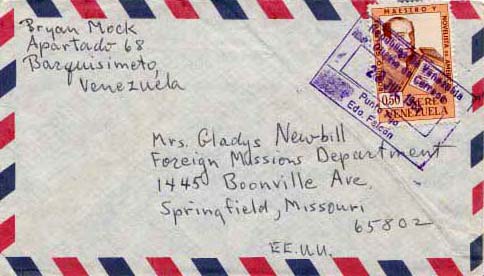 Bryan Mock
Apartado 68
Barquisimeto,
Venezuela
MAESTRO Y
NOVELISTA DE AMERICA
República de Venezuela
Correos
Punto Fijo
Edo. Falcón
0,50 AEREO
VENEZUELA
Mrs. Gladys Newbill
Foreign Missions Department
1445 Boonville Ave,
Springfield, Missouri
65802
EE.UU.